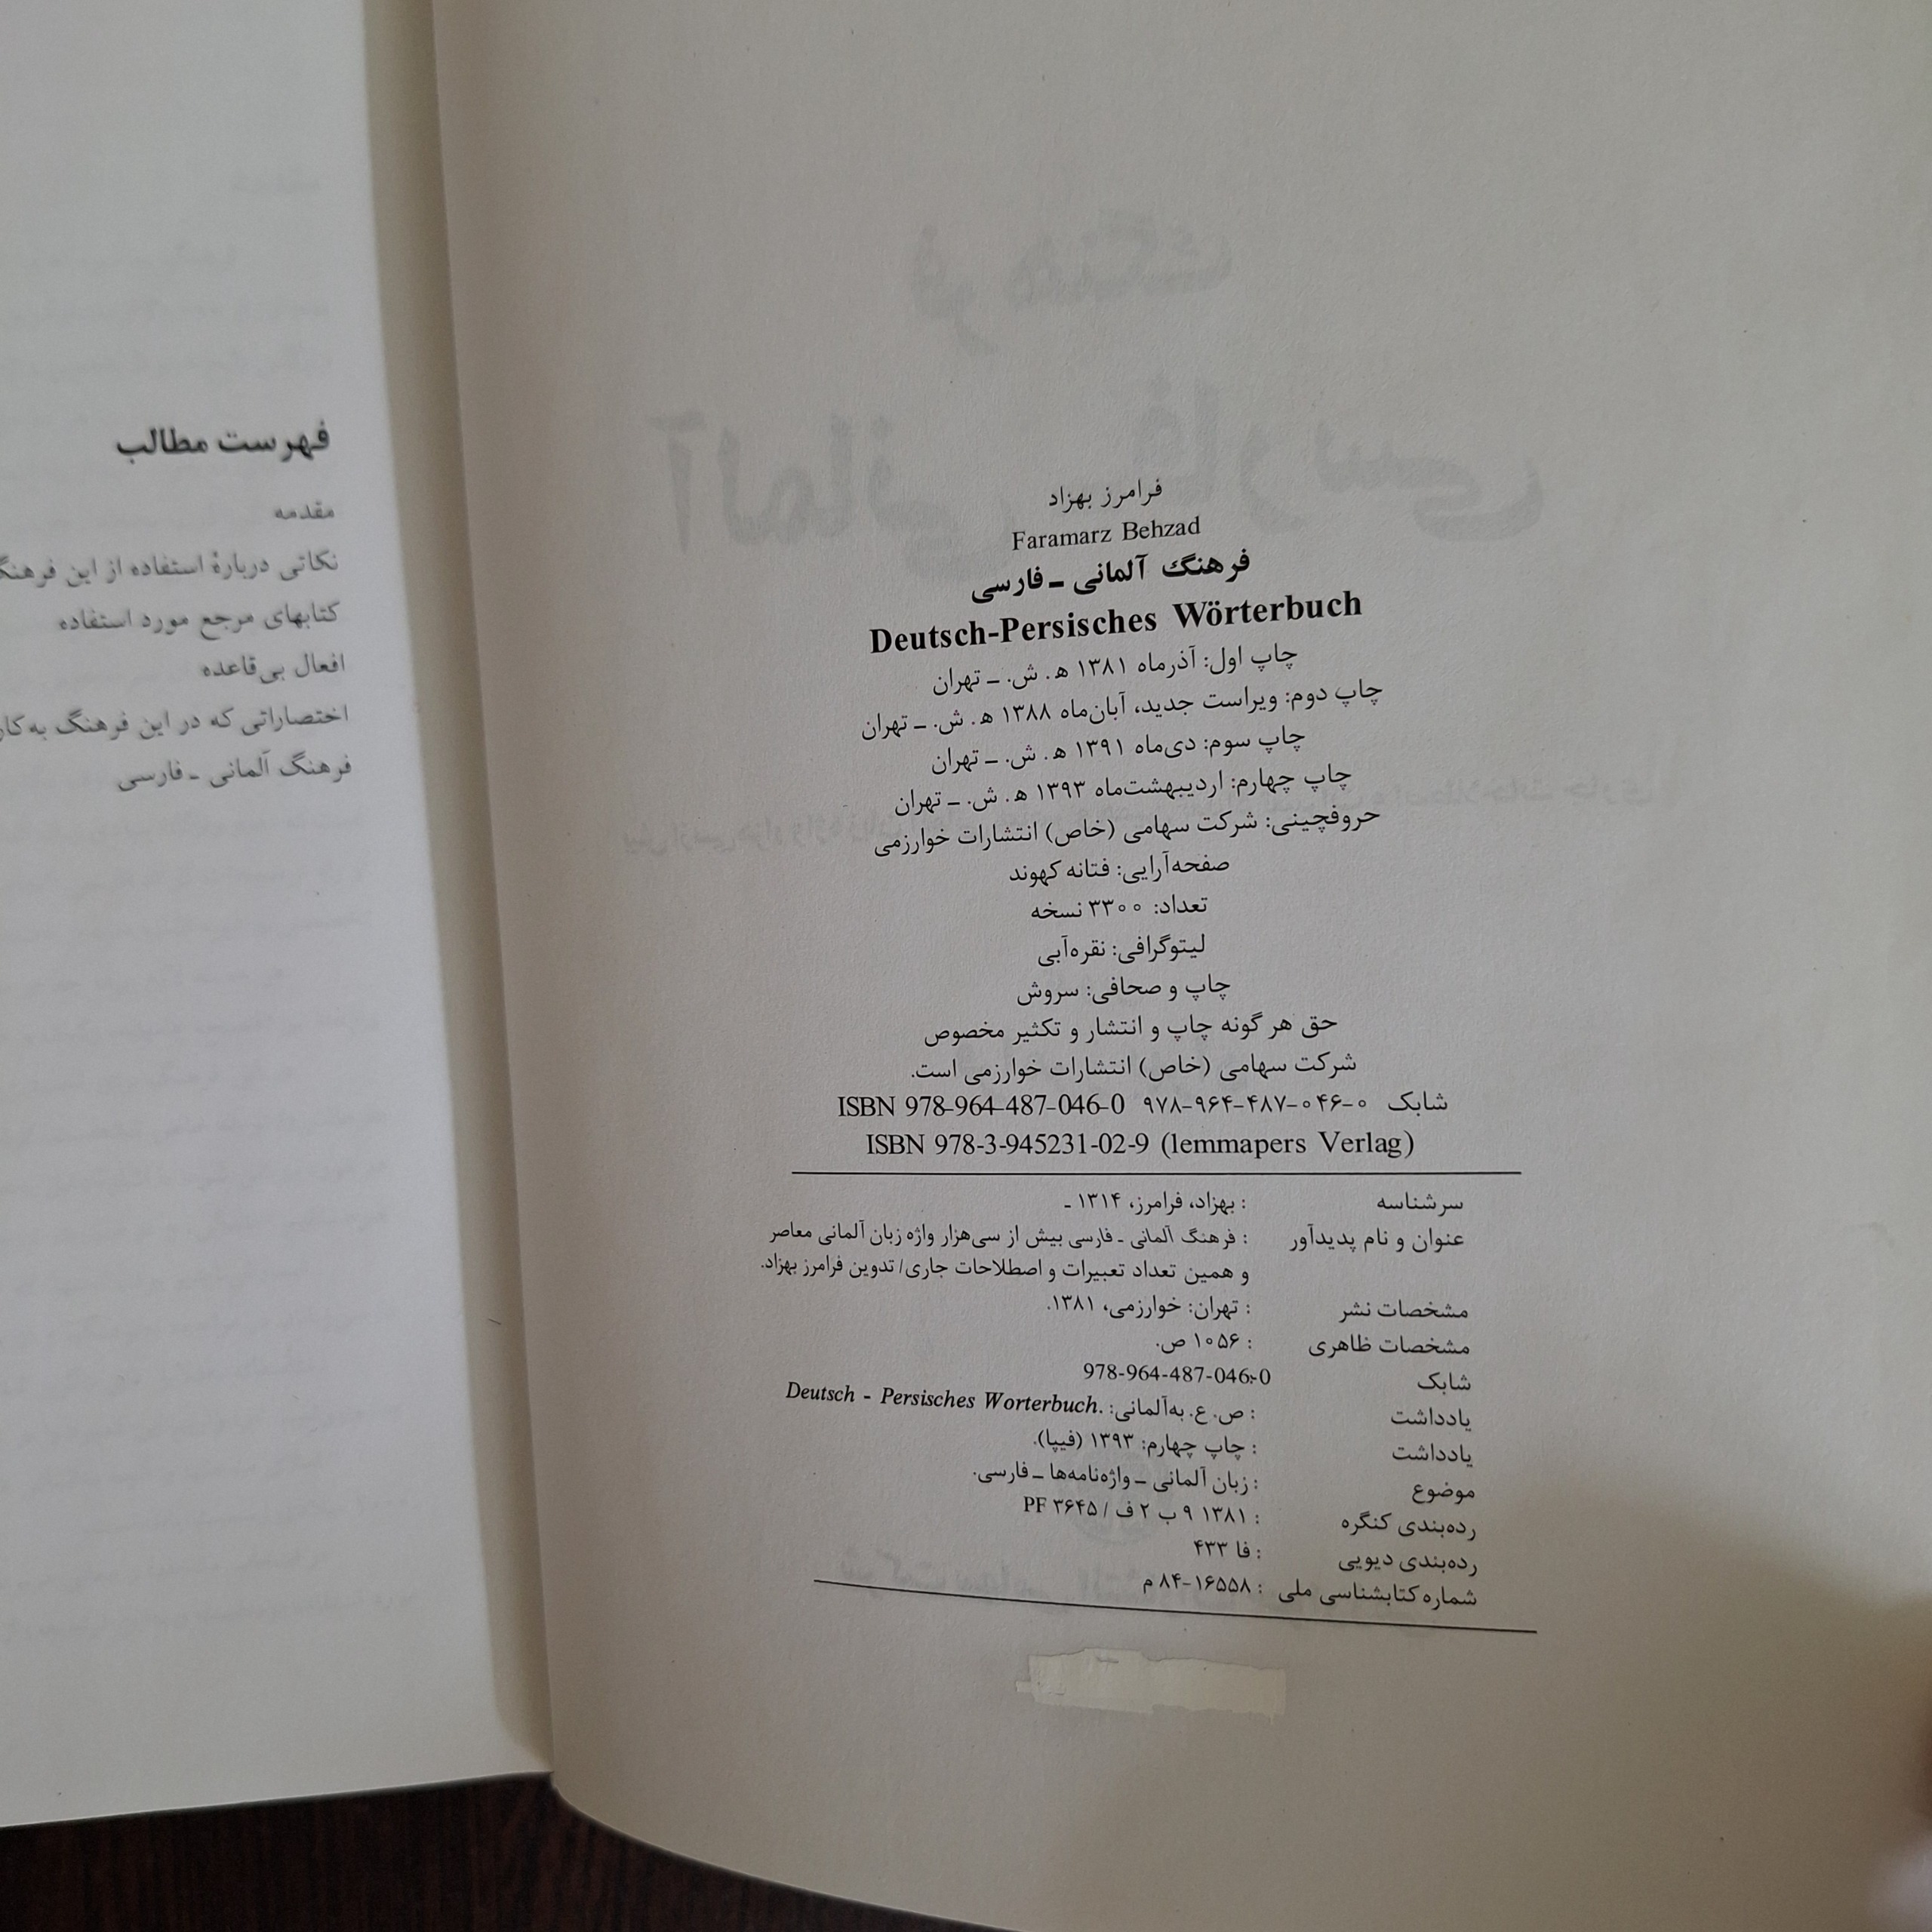 فرامرز بهزاد
Faramarz Behzad
فرهنگ آلمانی ـ فارسی
Deutsch-Persisches Wörterbuch
چاپ اول: آذرماه ۱۳۸۱ ه‍. ش. ـ تهران
چاپ دوم: ویراست جدید، آبان‌ماه ۱۳۸۸ ه‍. ش. ـ تهران
چاپ سوم: دی‌ماه ۱۳۹۱ ه‍. ش. ـ تهران
چاپ چهارم: اردیبهشت‌ماه ۱۳۹۳ ه‍. ش. ـ تهران
حروفچینی: شرکت سهامی (خاص) انتشارات خوارزمی
صفحه‌آرایی: فتانه کهوند
تعداد: ۳۳۰۰ نسخه
لیتوگرافی: نقره‌آبی
چاپ و صحافی: سروش
حق هر گونه چاپ و انتشار و تکثیر مخصوص
شرکت سهامی (خاص) انتشارات خوارزمی است.
شابک ۰-۰۴۶-۴۸۷-۹۶۴-۹۷۸ ISBN 978-964-487-046-0
ISBN 978-3-945231-02-9 (lemmapers Verlag)
سرشناسه : بهزاد، فرامرز، ۱۳۱۴ ـ
عنوان و نام پدیدآور : فرهنگ آلمانی ـ فارسی بیش از سی‌هزار واژه زبان آلمانی معاصر
و همین تعداد تعبیرات و اصطلاحات جاری/ تدوین فرامرز بهزاد.
مشخصات نشر : تهران: خوارزمی، ۱۳۸۱.
مشخصات ظاهری : ۱۰۵۶ ص.
شابک : 978-964-487-046-0
یادداشت : ص. ع. به‌آلمانی: Deutsch - Persisches Worterbuch.
یادداشت : چاپ چهارم: ۱۳۹۳ (فیپا).
موضوع : زبان آلمانی ـ واژه‌نامه‌ها ـ فارسی.
رده‌بندی کنگره : ۱۳۸۱ ۹ ب ۲ ف / PF ۳۶۴۵
رده‌بندی دیویی : فا ۴۳۳
شماره کتابشناسی ملی : ۱۶۵۵۸-۸۴ م
فهرست مطالب
مقدمه
نکاتی دربارهٔ استفاده از این فرهنگ
کتابهای مرجع مورد استفاده
افعال بی‌قاعده
اختصاراتی که در این فرهنگ به‌کار
فرهنگ آلمانی ـ فارسی